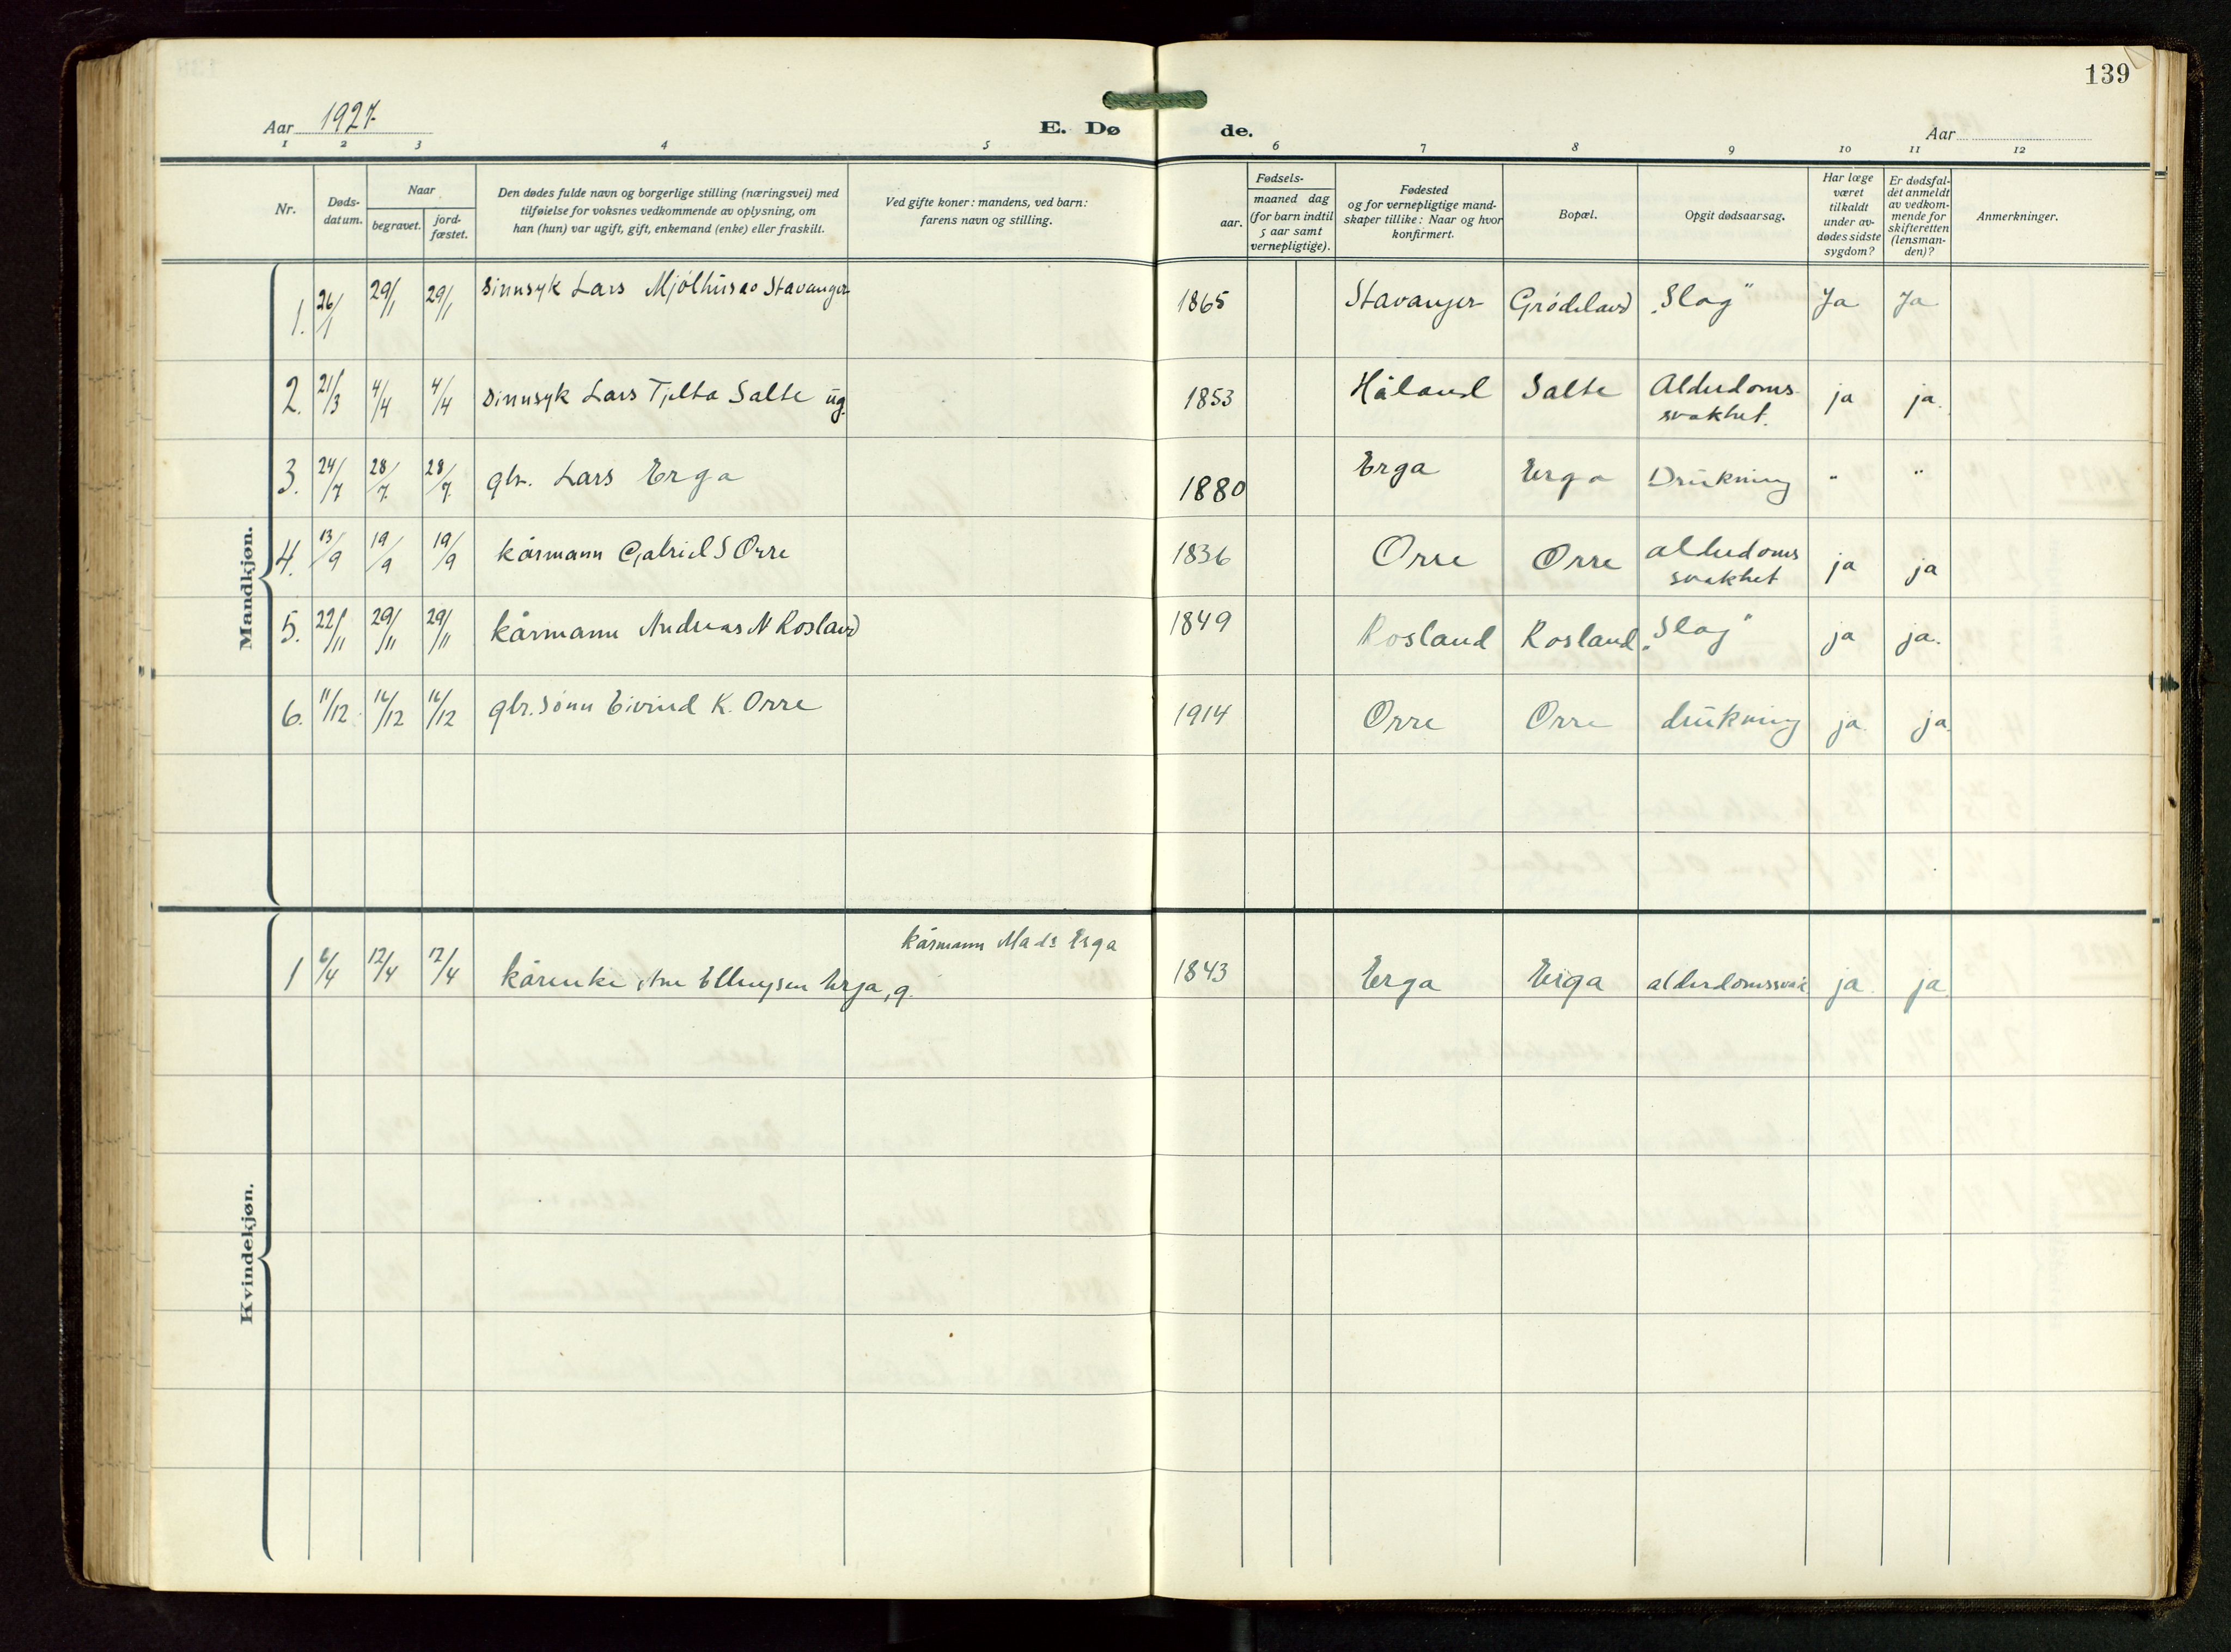 139
Aar 1927
E. Dø de.
Aar
1 2 3 4 5 6 7 8 9 10 11 12
Nr.
Døds-
datum.
Naar
begravet.
jord-
fæstet.
Den dødes fulde navn og borgerlige stilling (næringsvei) med
tilføielse for voksnes vedkommende av oplysning, om
han (hun) var ugift, gift, enkemand (enke) eller fraskilt.
Ved gifte koner: mandens, ved barn:
farens navn og stilling.
Fødsels-
aar.
maaned dag
(for barn indtil
5 aar samt
vernepligtige).
Fødested
og for vernepligtige mand-
skaper tillike: Naar og hvor
konfirmert.
Bopæl.
Opgit dødsaarsag.
Har læge
været
tilkaldt
under av-
dødes sidste
sygdom?
Er dødsfal-
det anmeldt
av vedkom-
mende for
skifteretten
(lensman-
den)?
Anmerkninger.
Mandkjøn.
1. 26/1 29/1 29/1 Sinnsyk Lars Mjölhus Stavanger 1865 Stavanger Grødeland "Slag" Ja Ja
2. 21/3 4/4 4/4 Sinnsyk Lars Tjelta Salte ug. 1853 Håland Salte Alderdoms-
svakhet. ja ja.
3. 24/7 28/7 28/7 gbr. Lars Erga 1880 Erga Erga Drukning " "
4. 13/9 19/9 19/9 kårmann Gabriel S Orre 1836 Orre Orre alderdoms
svakhet ja ja
5. 22/11 29/11 29/11 kårmann Andreas N Rosland 1849 Rosland Rosland "Slag" ja ja.
6. 11/12 16/12 16/12 gbr. sønn Eivind K. Orre 1914 Orre Orre drukning ja. ja.
Kvindekjøn.
kårmann Mads Erga
1 6/4 12/4 12/4 kårenke Ane Ellingsen Erga, g. 1843 Erga Erga alderdomssvak. ja. ja